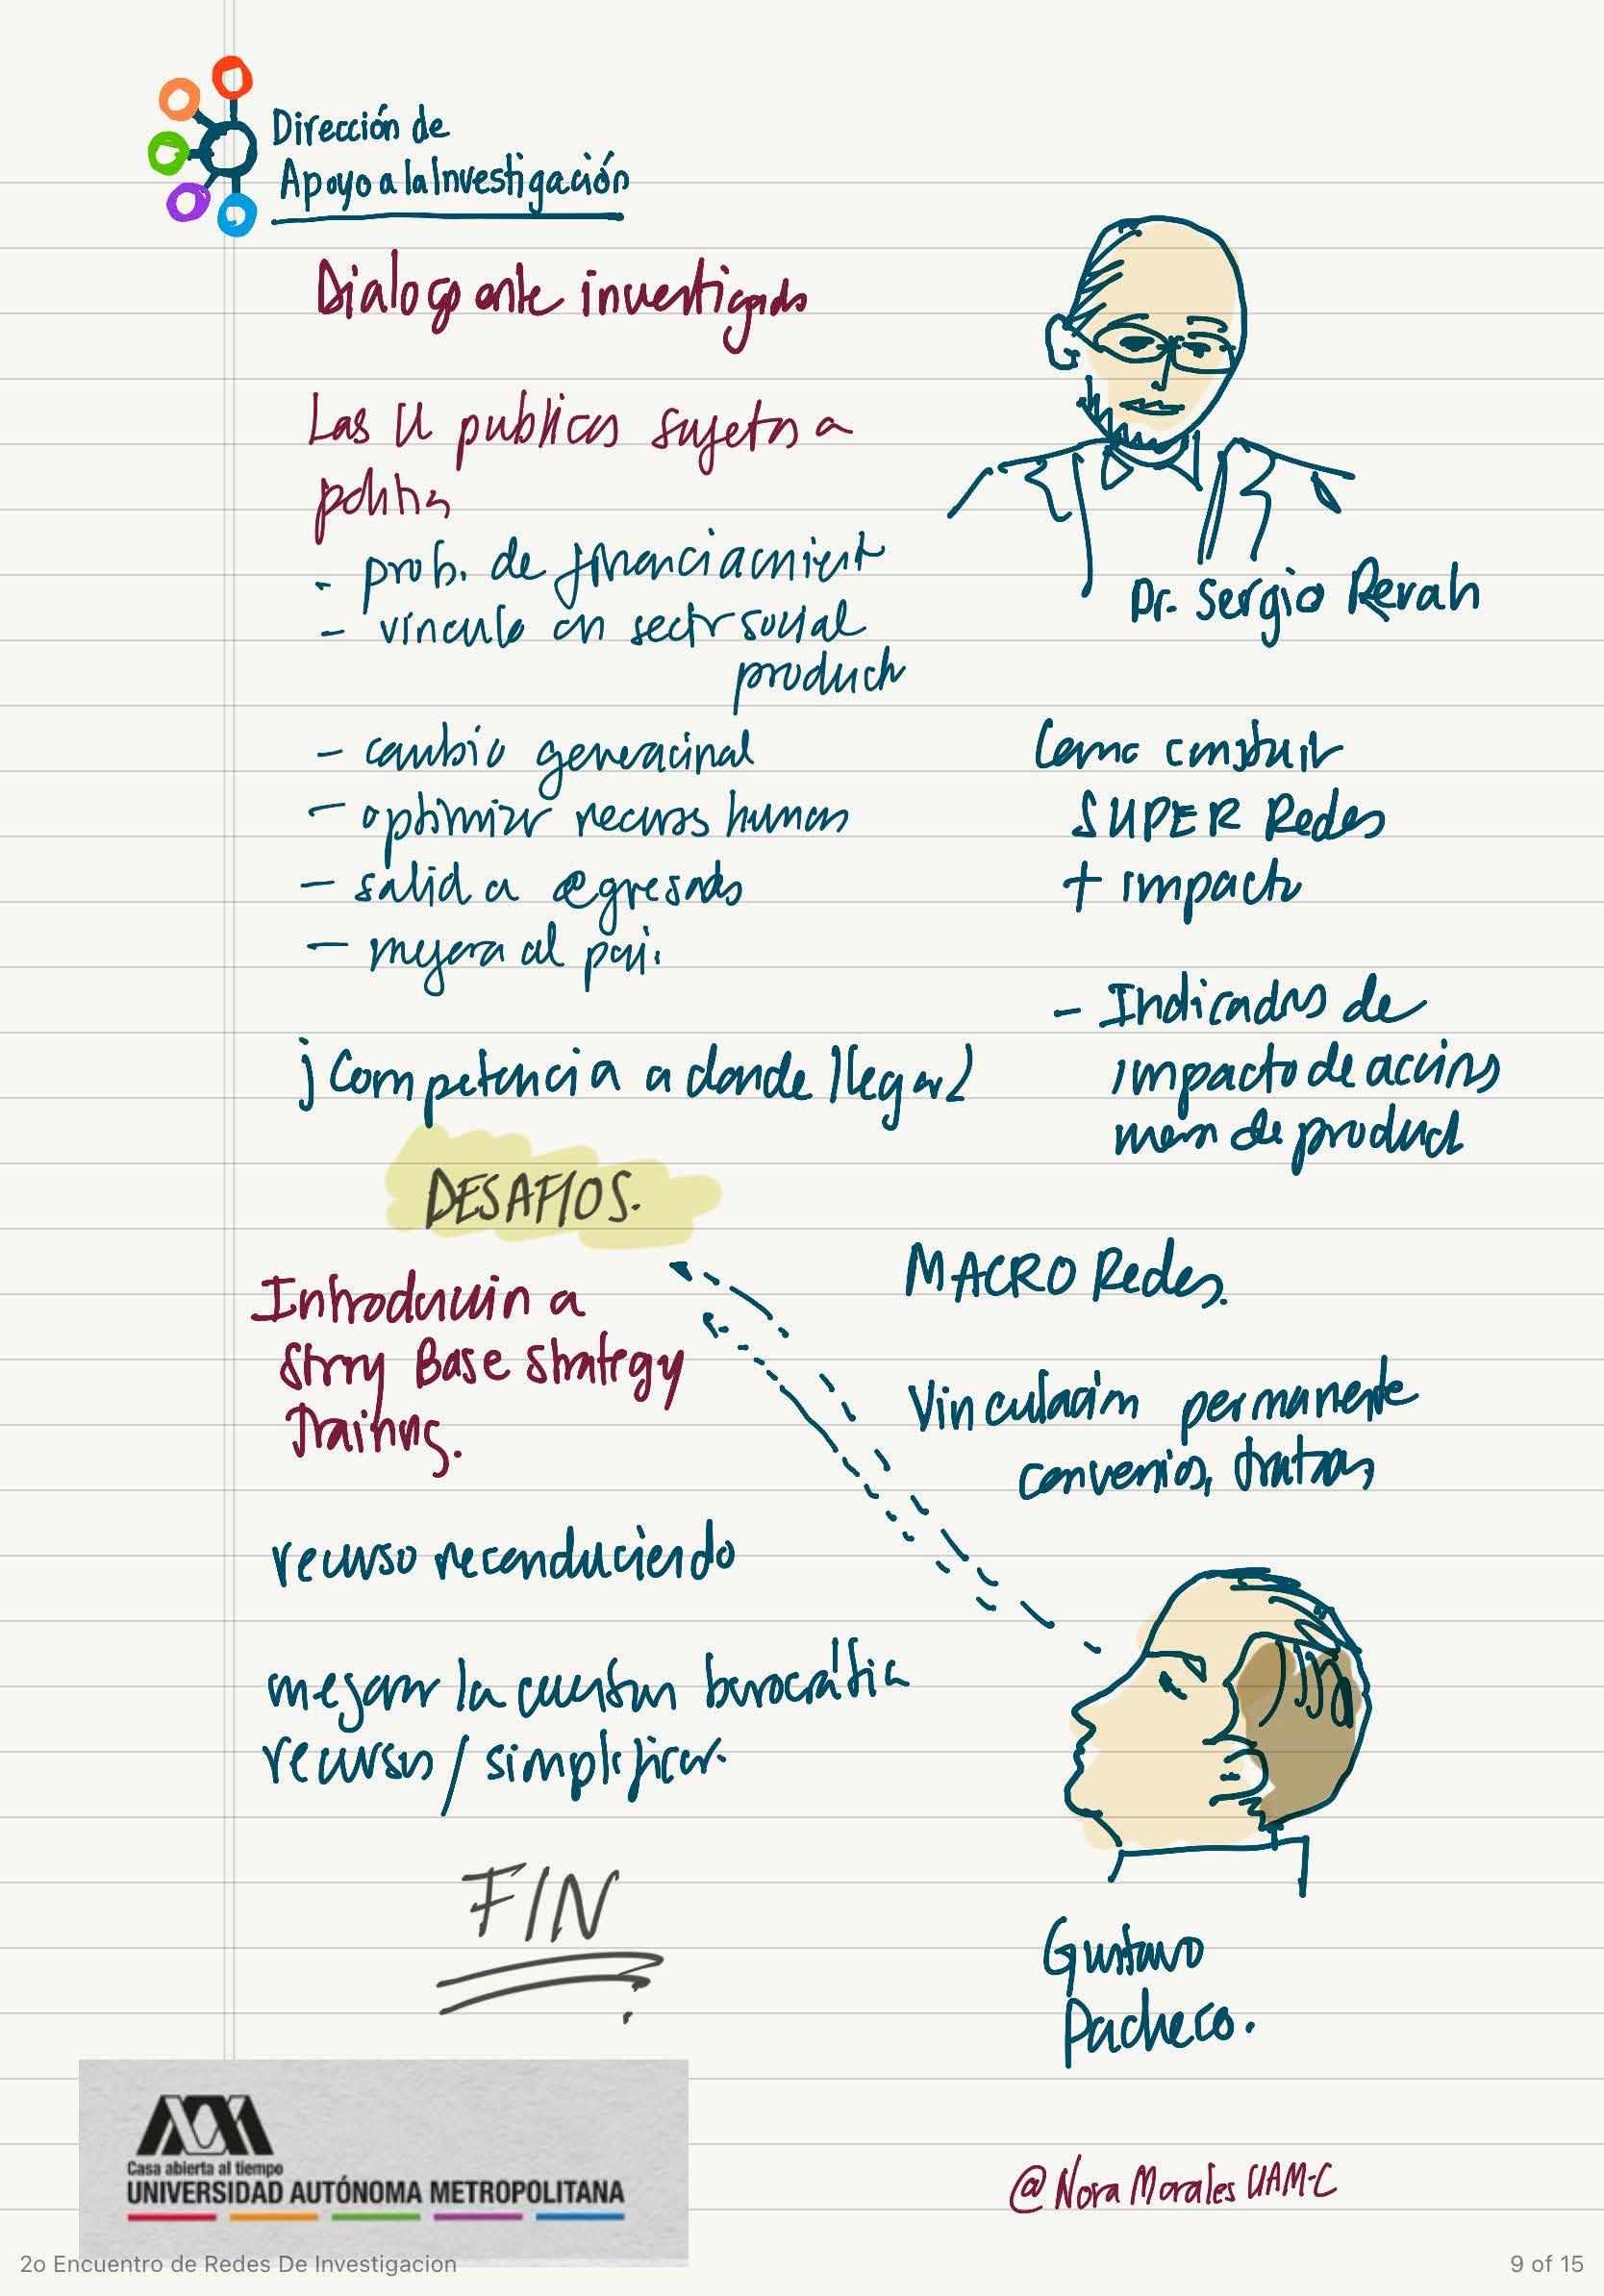 Dirección de
Apoyo a la Investigación
Dialogo ante investigads
Las U publicas sujetas a
- prob. de financiamient
- vínculo con sectr social
product
- cambio generacinal
- optimizar recursos humans
- salid a egresads
- mejora al pai.
¡Competencia a donde llegar?
DESAFIOS.
Introducuin a
Story Base Strategy
recurso reconduciendo
mejorar la cuestun burocrática
recursos / simplificar.
FIN
Dr. Sergio Revah
Como construir
SUPER Redes
+ impacto
- Indicadrs de
impacto de accins
de product
MACRO Redes.
Vinculación permanente
convenios,
Gustavo
Pacheco.
Casa abierta al tiempo
UNIVERSIDAD AUTÓNOMA METROPOLITANA
@Nora Morales UAM-C
2o Encuentro de Redes De Investigacion
9 of 15